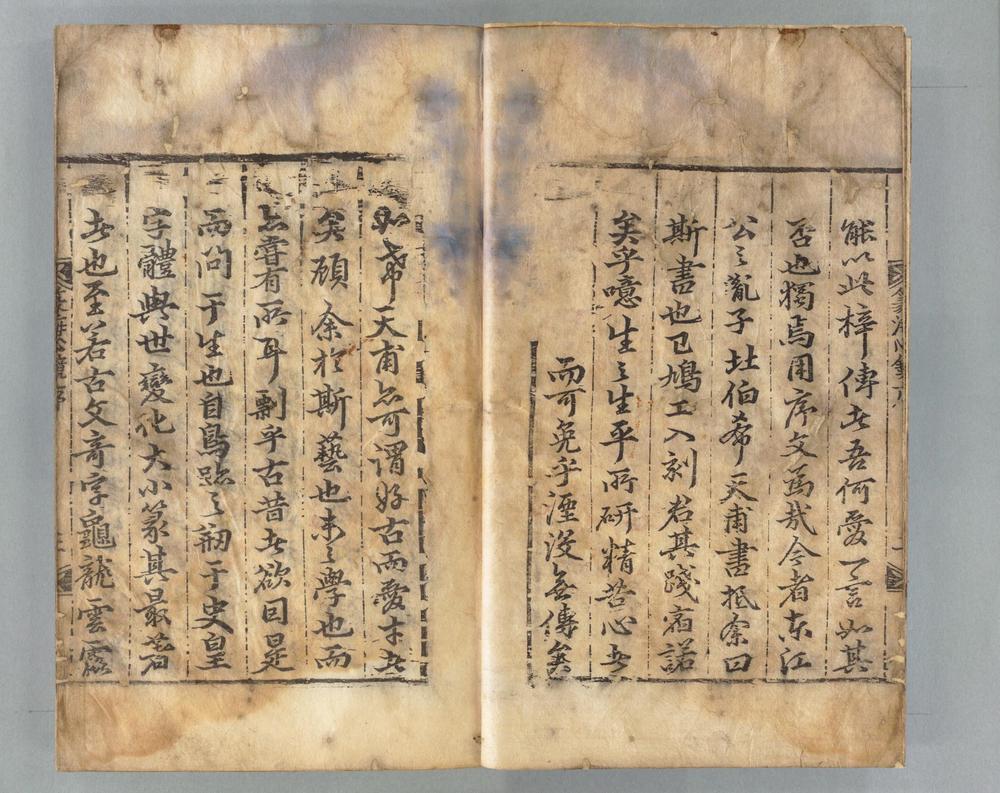 能以此梓傳者吾何愛一言如其
否也獨焉用序文爲哉今者東江
公之胤子壯伯希天甫書抵余曰
斯書也已鳩工入刻君其踐宿諾
矣乎噫生之生平所研精苦心者
而可免乎湮沒無傳矣
如希天甫亦可謂好古而愛士者
矣顧余於斯藝也未之學也而
亦嘗有所耳剽乎古昔者欲因是
而問于生也自鳥跡之刱于史皇
字體與世變化大小篆其最著
者也至若古文奇字龜龍雲露
篆海心鏡序